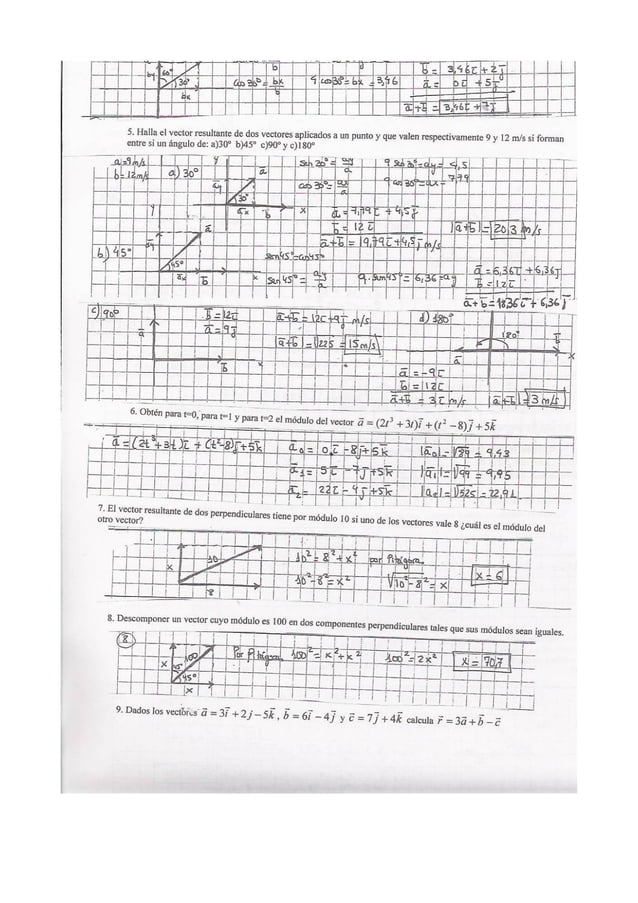 60°
30°
bx
cos 30° = bx/b
4 cos 30° = bx = 3,46
b = 3,46 i + 2 j
a = 0 i + 5 j
a+b = 3,46 i + 7 j
5. Halla el vector resultante de dos vectores aplicados a un punto y que valen respectivamente 9 y 12 m/s si forman
entre si un ángulo de: a)30° b)45° c)90° y c)180°
a=9m/s
b=12m/s
a) 30°
sen 30° = ay/a
9 sen 30° = ay = 4,5
cos 30° = ax/a
9 cos 30° = ax = 7,79
a = 7,79 i + 4,5 j
b = 12 i
a+b = 19,79 i + 4,5 j m/s
|a+b| = 20,3 m/s
b) 45°
sen45° = cos45°
sen 45° = ay/a
9. sen45° = 6,36 = ay
a = 6,36 i + 6,36 j
b = 12 i
a+b = 18,36 i + 6,36 j
c) 90°
b = 12 i
a = 9 j
a+b = 12 i + 9 j m/s
a+b = √225 = 15 m/s
d) 180°
180°
a = -9 i
b = 12 i
a+b = 3 i m/s
|a+b| = 3 m/s
6. Obtén para t=0, para t=1 y para t=2 el módulo del vector a = (2t³ + 3t)i + (t² − 8)j + 5k
a = (2t³+3t) i + (t²-8) j + 5k
a₀ = 0 i - 8 j + 5k
|a₀| = √89 = 9,43
a₁ = 5 i - 7 j + 5k
|a₁| = √99 = 9,95
a₂ = 22 i - 4 j + 5k
|a₂| = √525 = 22,91
7. El vector resultante de dos perpendiculares tiene por módulo 10 si uno de los vectores vale 8 ¿cuál es el módulo del
otro vector?
x
10
8
10² = 8² + x²
por Pitágora.
10² - 8² = x²
√10² - 8² = x
x = 6
8. Descomponer un vector cuyo módulo es 100 en dos componentes perpendiculares tales que sus módulos sean iguales.
8
x
100
45°
x
Por Pitágora,
100² = x² + x²
100² = 2x²
x = 70,7
9. Dados los vectores a = 3i + 2j − 5k , b = 6i − 4j y c = 7j + 4k calcula r = 3a + b − c